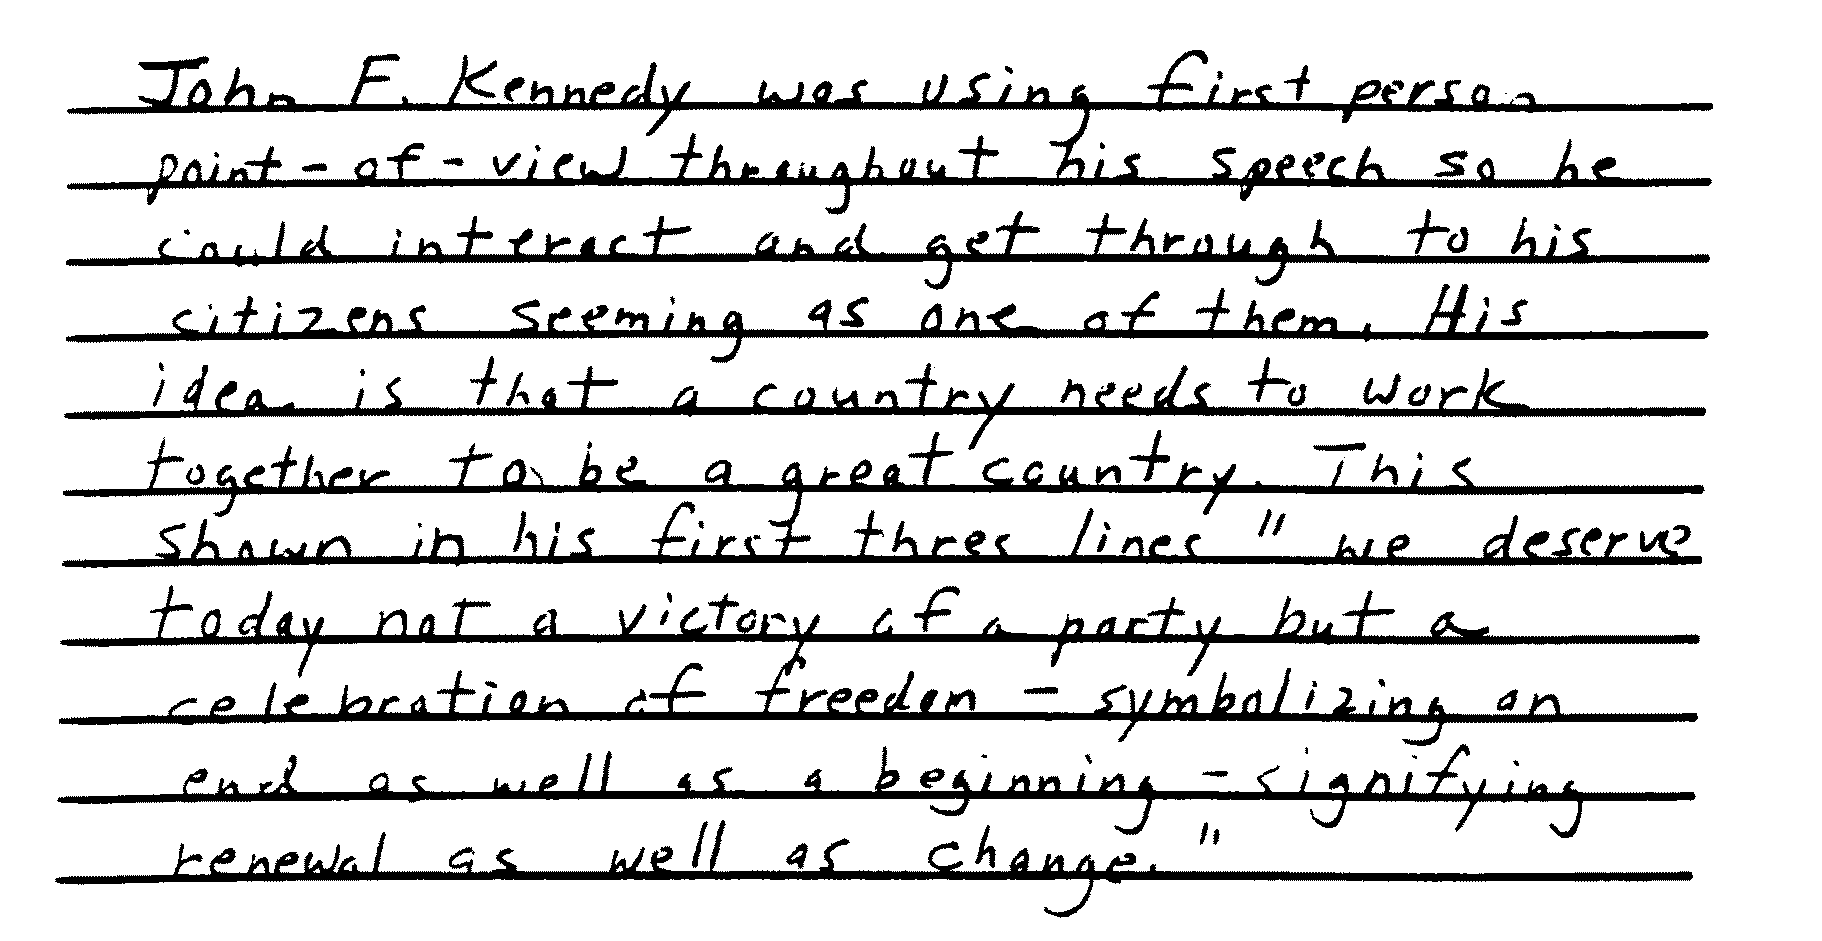 John F. Kennedy was using first person
point-of-view throughout his speech so he
could interact and get through to his
citizens seeming as one of them. His
idea is that a country needs to work
together to be a great country. This
shown in his first three lines "we deserve
today not a victory of a party but a
celebration of freedom - symbolizing an
end as well as a beginning - signifying
renewal as well as change."